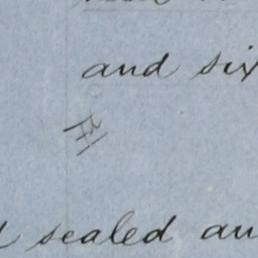 and six
sealed an